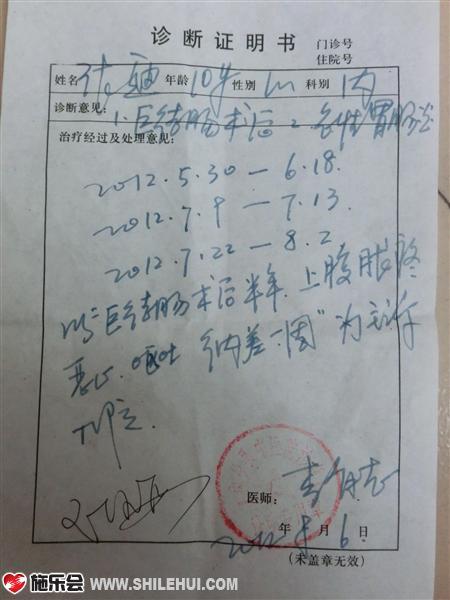 诊断证明书 门诊号
住院号
姓名 年龄 10岁 性别 科别 内
诊断意见: 1. 巨结肠术后 2. 急性胃肠炎
治疗经过及处理意见:
2012.5.30 — 6.18.
2012.7.9 — 7.13.
2012.7.22 — 8.2
以"巨结肠术后半年、上腹胀疼
恶心、呕吐 纳差一周"为主诉
医师:
2012年8月6日
(未盖章无效)
施乐会 WWW.SHILEHUI.COM